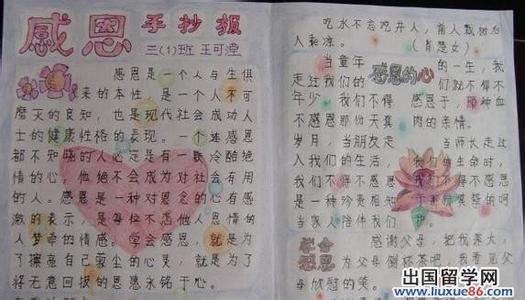 感恩 手抄报
三(1)班 王可滢
感恩是一个人与生俱
来的本性，是一个人不可
磨灭的良知，也是现代社会成功人
士的健康性格的表现。一个连感恩
都不知晓的人必定是有一颗冷酷绝
情的心，他绝不会成为对社会有用
的人。感恩是一种对恩惠的心有感
激的表示，是每位不忘他人恩情的
人梦牵的情感。学会感恩，就是为
了擦亮自己蒙尘的心灵，就是为了
将无意回报的恩惠永铭于心。
吃水不忘挖井人，前人栽树后
人乘凉。（肖楚女）
感恩的心
当童年 的一生，我
走过我们的 们就不得不
年少 我们不得 感恩于，那种血
不感恩那份天真 肉的亲情。
岁月，当朋友走 当师长走过
入我们的生活， 我们的生命时，
我们不得不感恩 我们不得不感恩
是一种珍贵相
当家人陪伴我们
学会感恩
感谢父母，把我养大，
为父母倒杯茶吧，
出国留学网
www.liuxue86.com